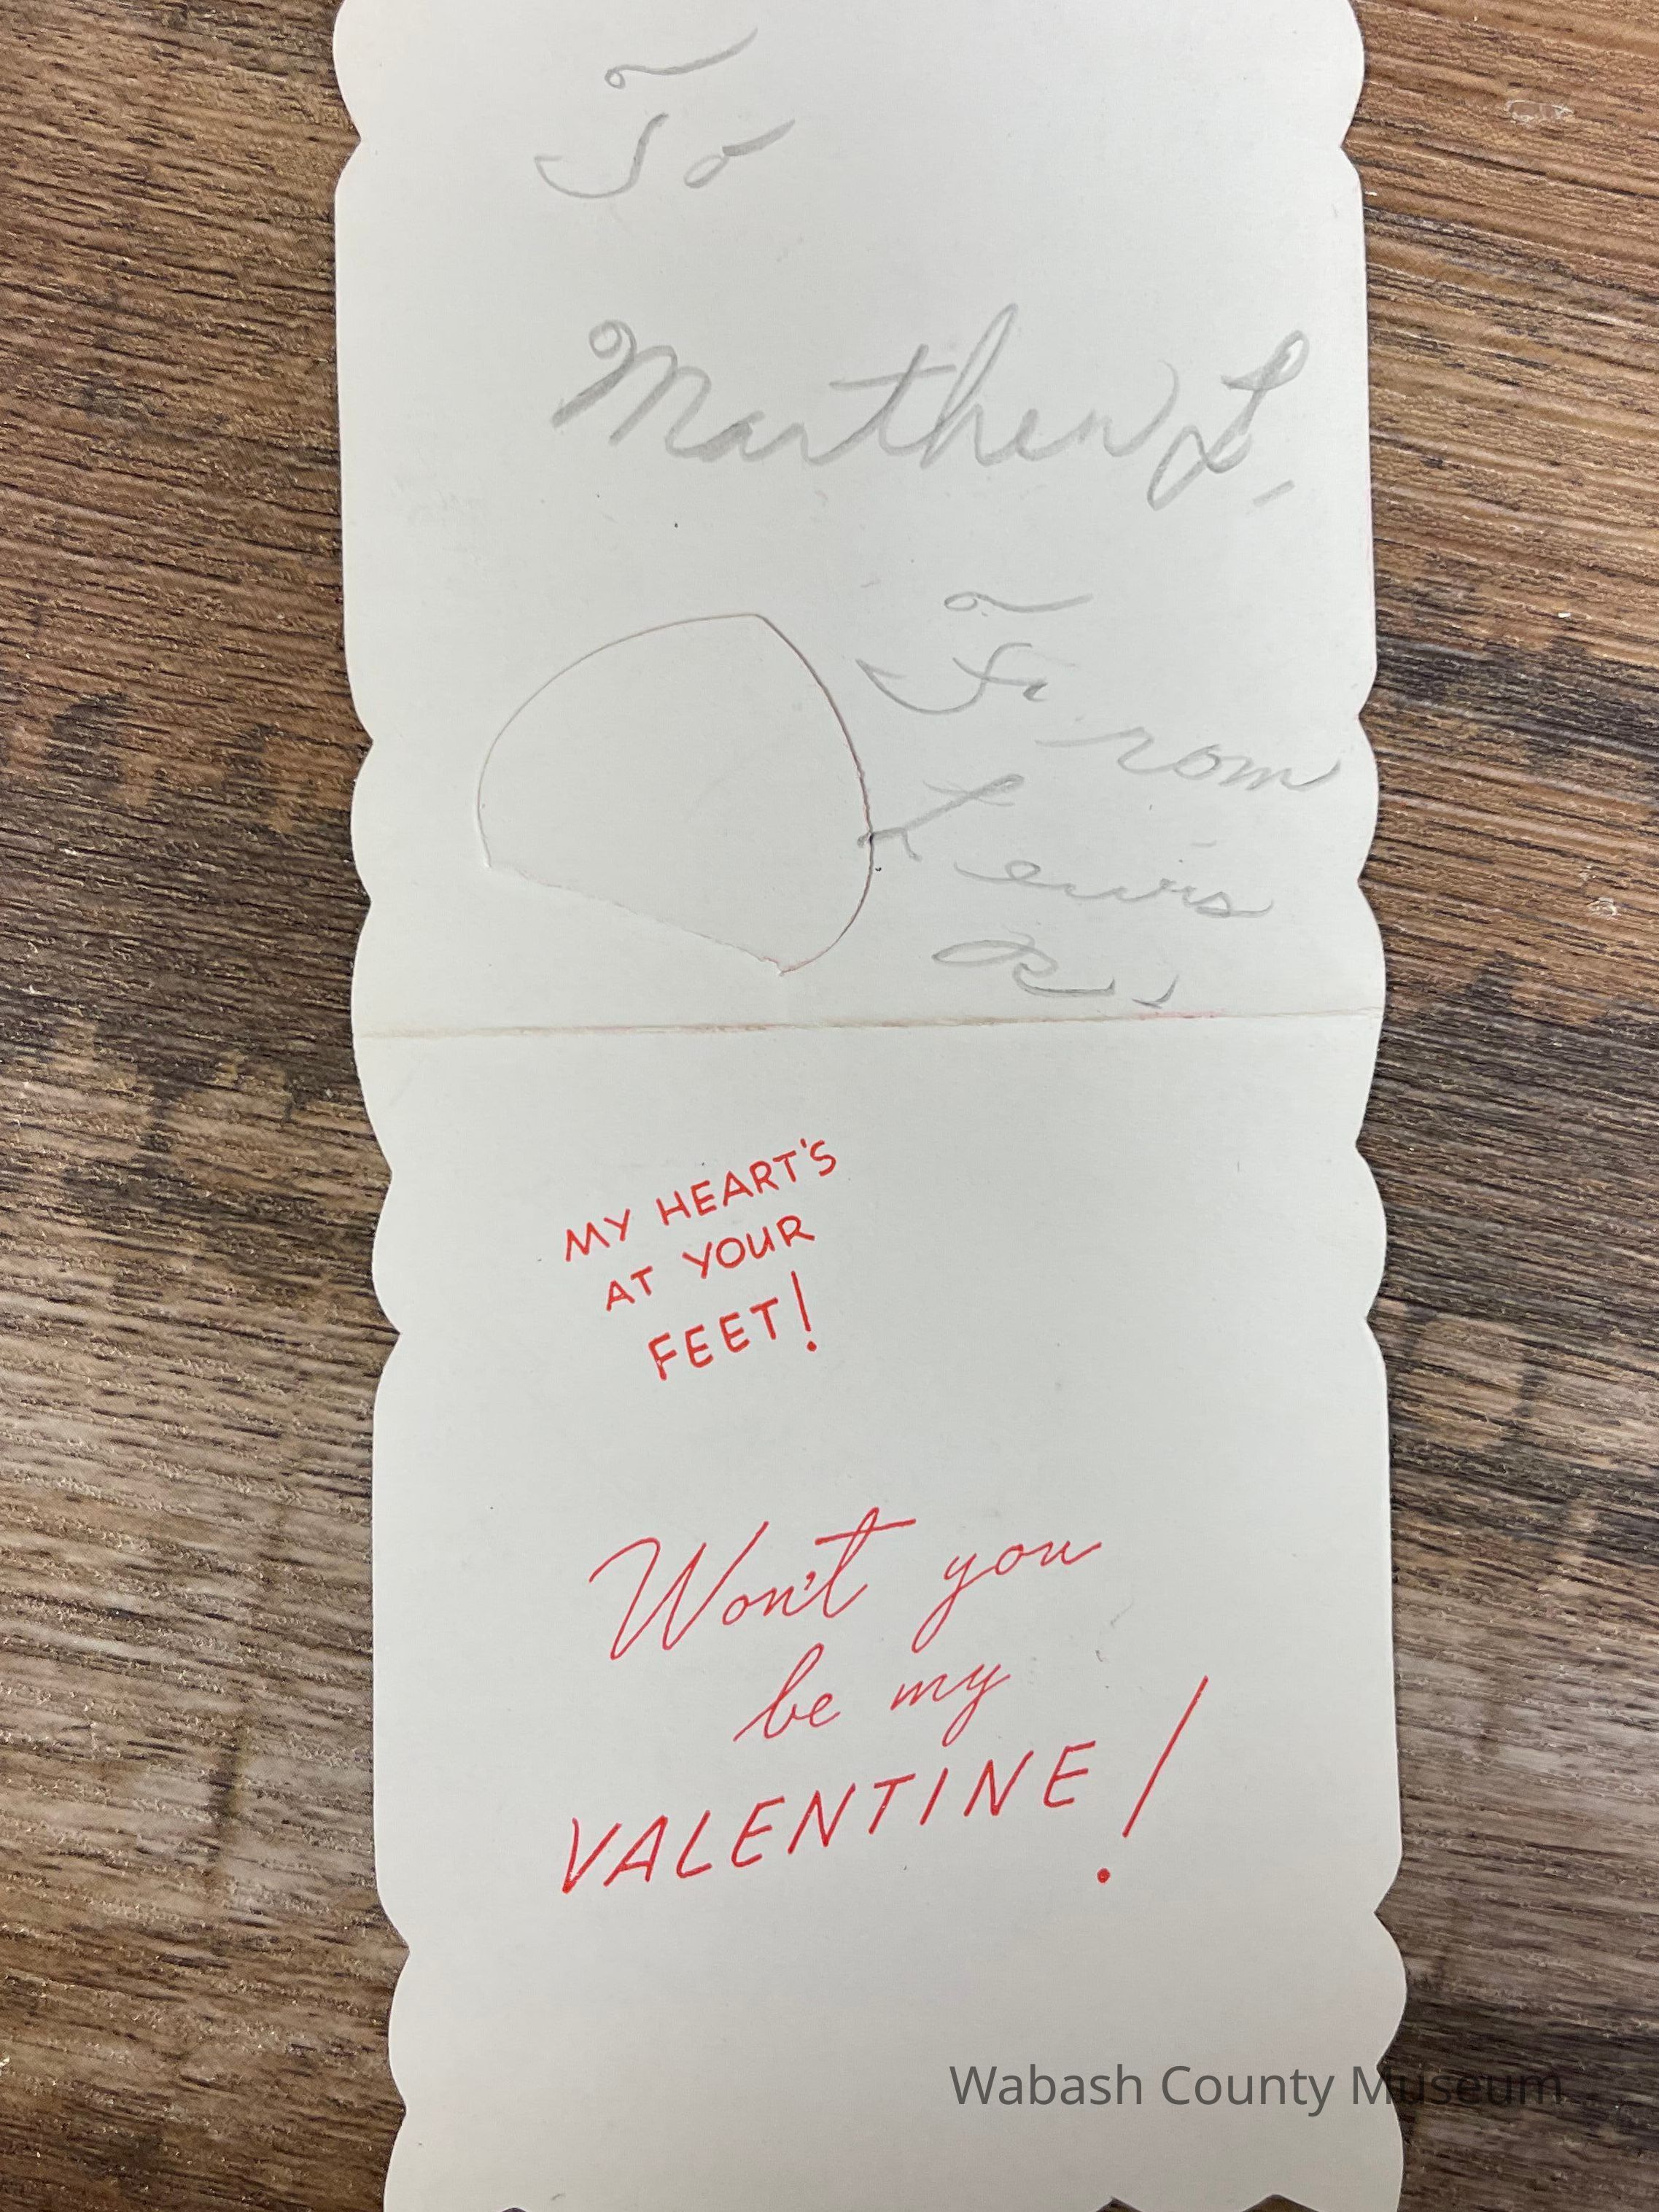 To
Marthew L.
From
Lewis
R.
MY HEART'S
AT YOUR
FEET!
Won't you
be my
VALENTINE!
Wabash County Museum